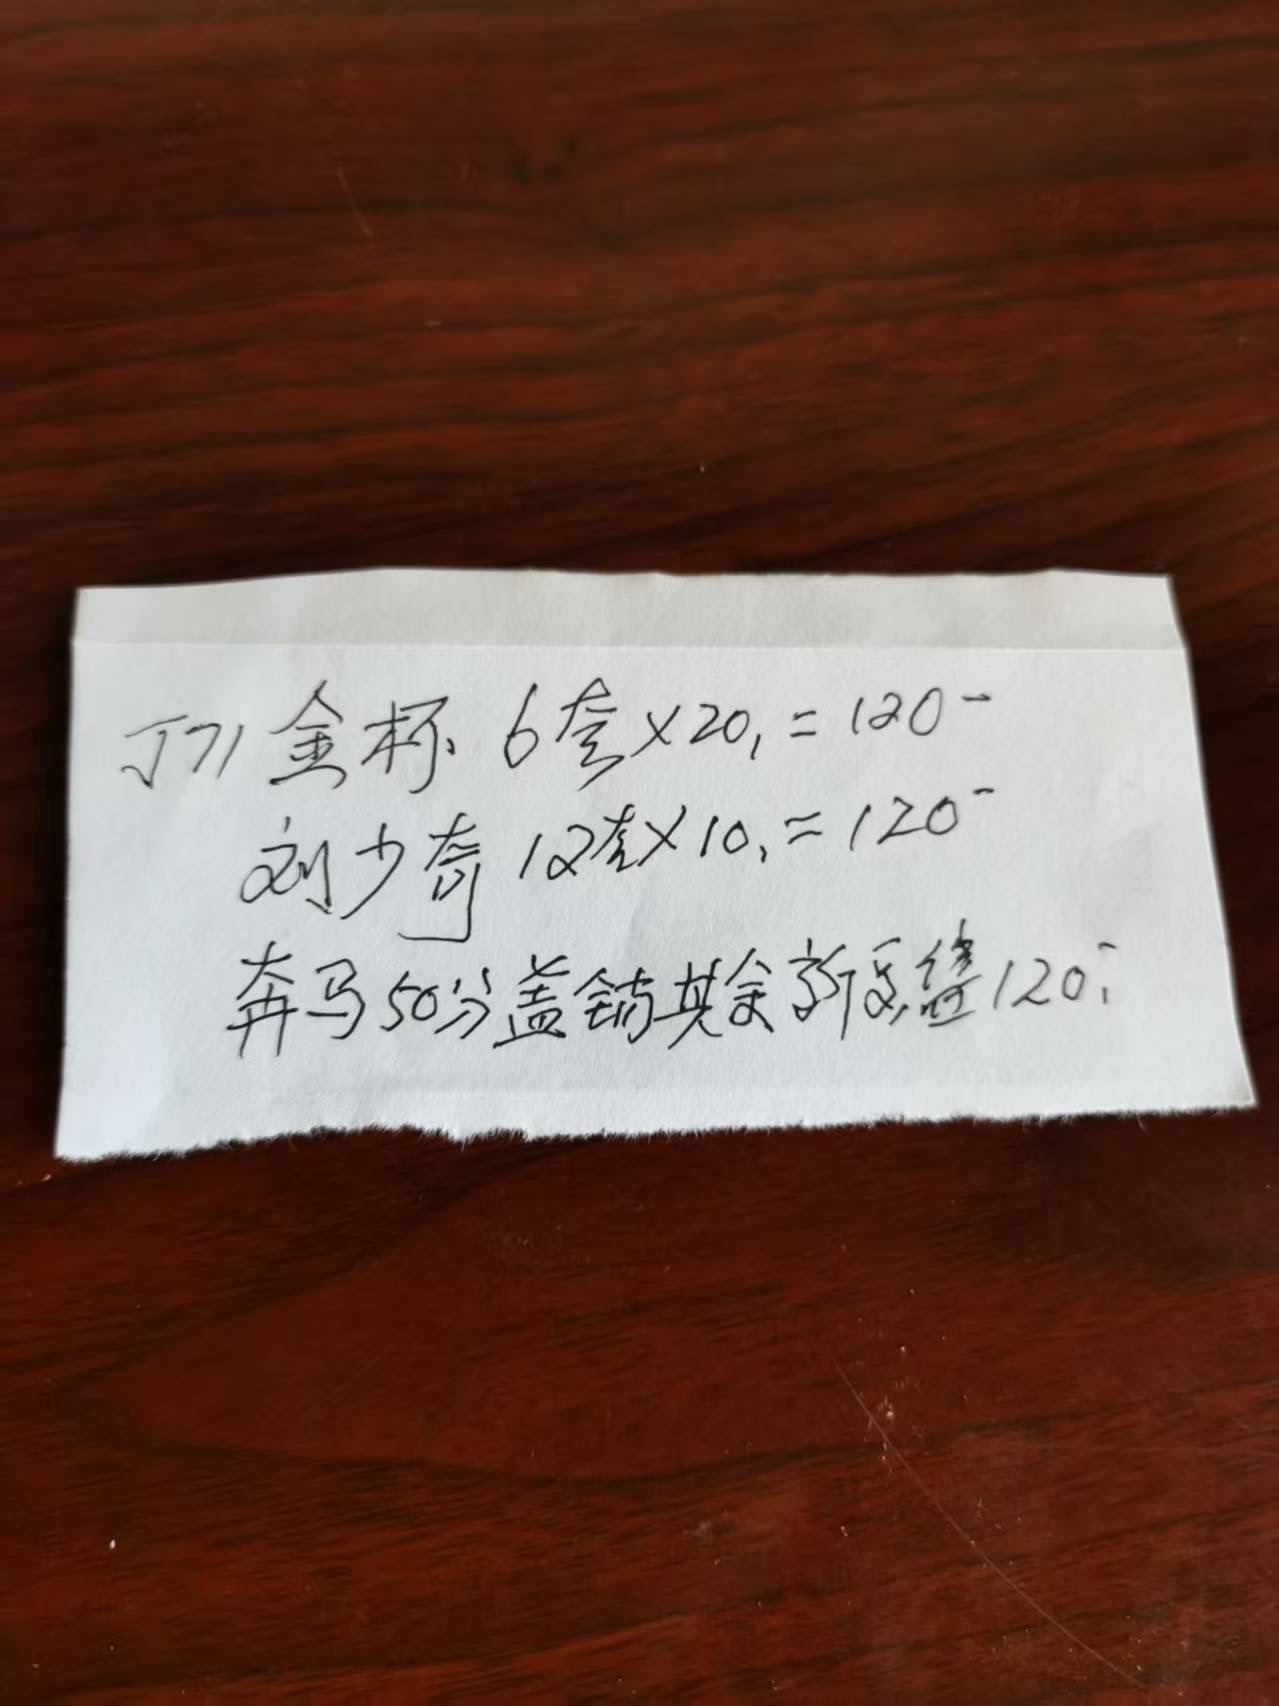 J71金杯 6套×20,=120-
刘少奇 12套×10,=120-
奔马50分盖销其余新 120-